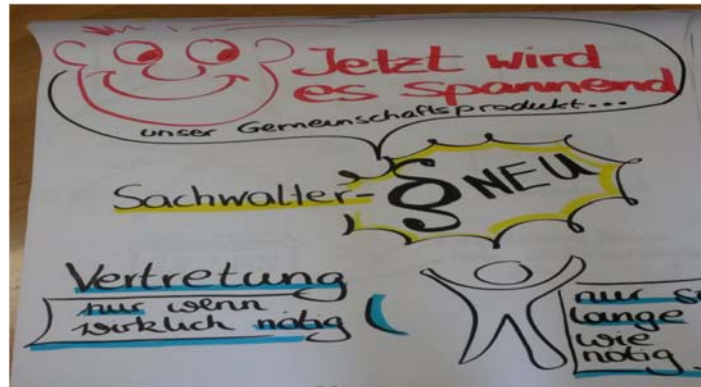 Jetzt wird
es spannend
unser Gemeinschaftsprodukt...
Sachwalter-§ NEU
Vertretung
nur wenn
wirklich nötig
nur so
lange
wie
nötig